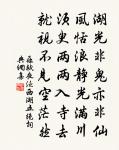 湖光非鬼亦非仙
風恬浪靜光滿川
須臾兩兩入寺去
就視不見空茫然
蘇軾夜泛西湖五絕